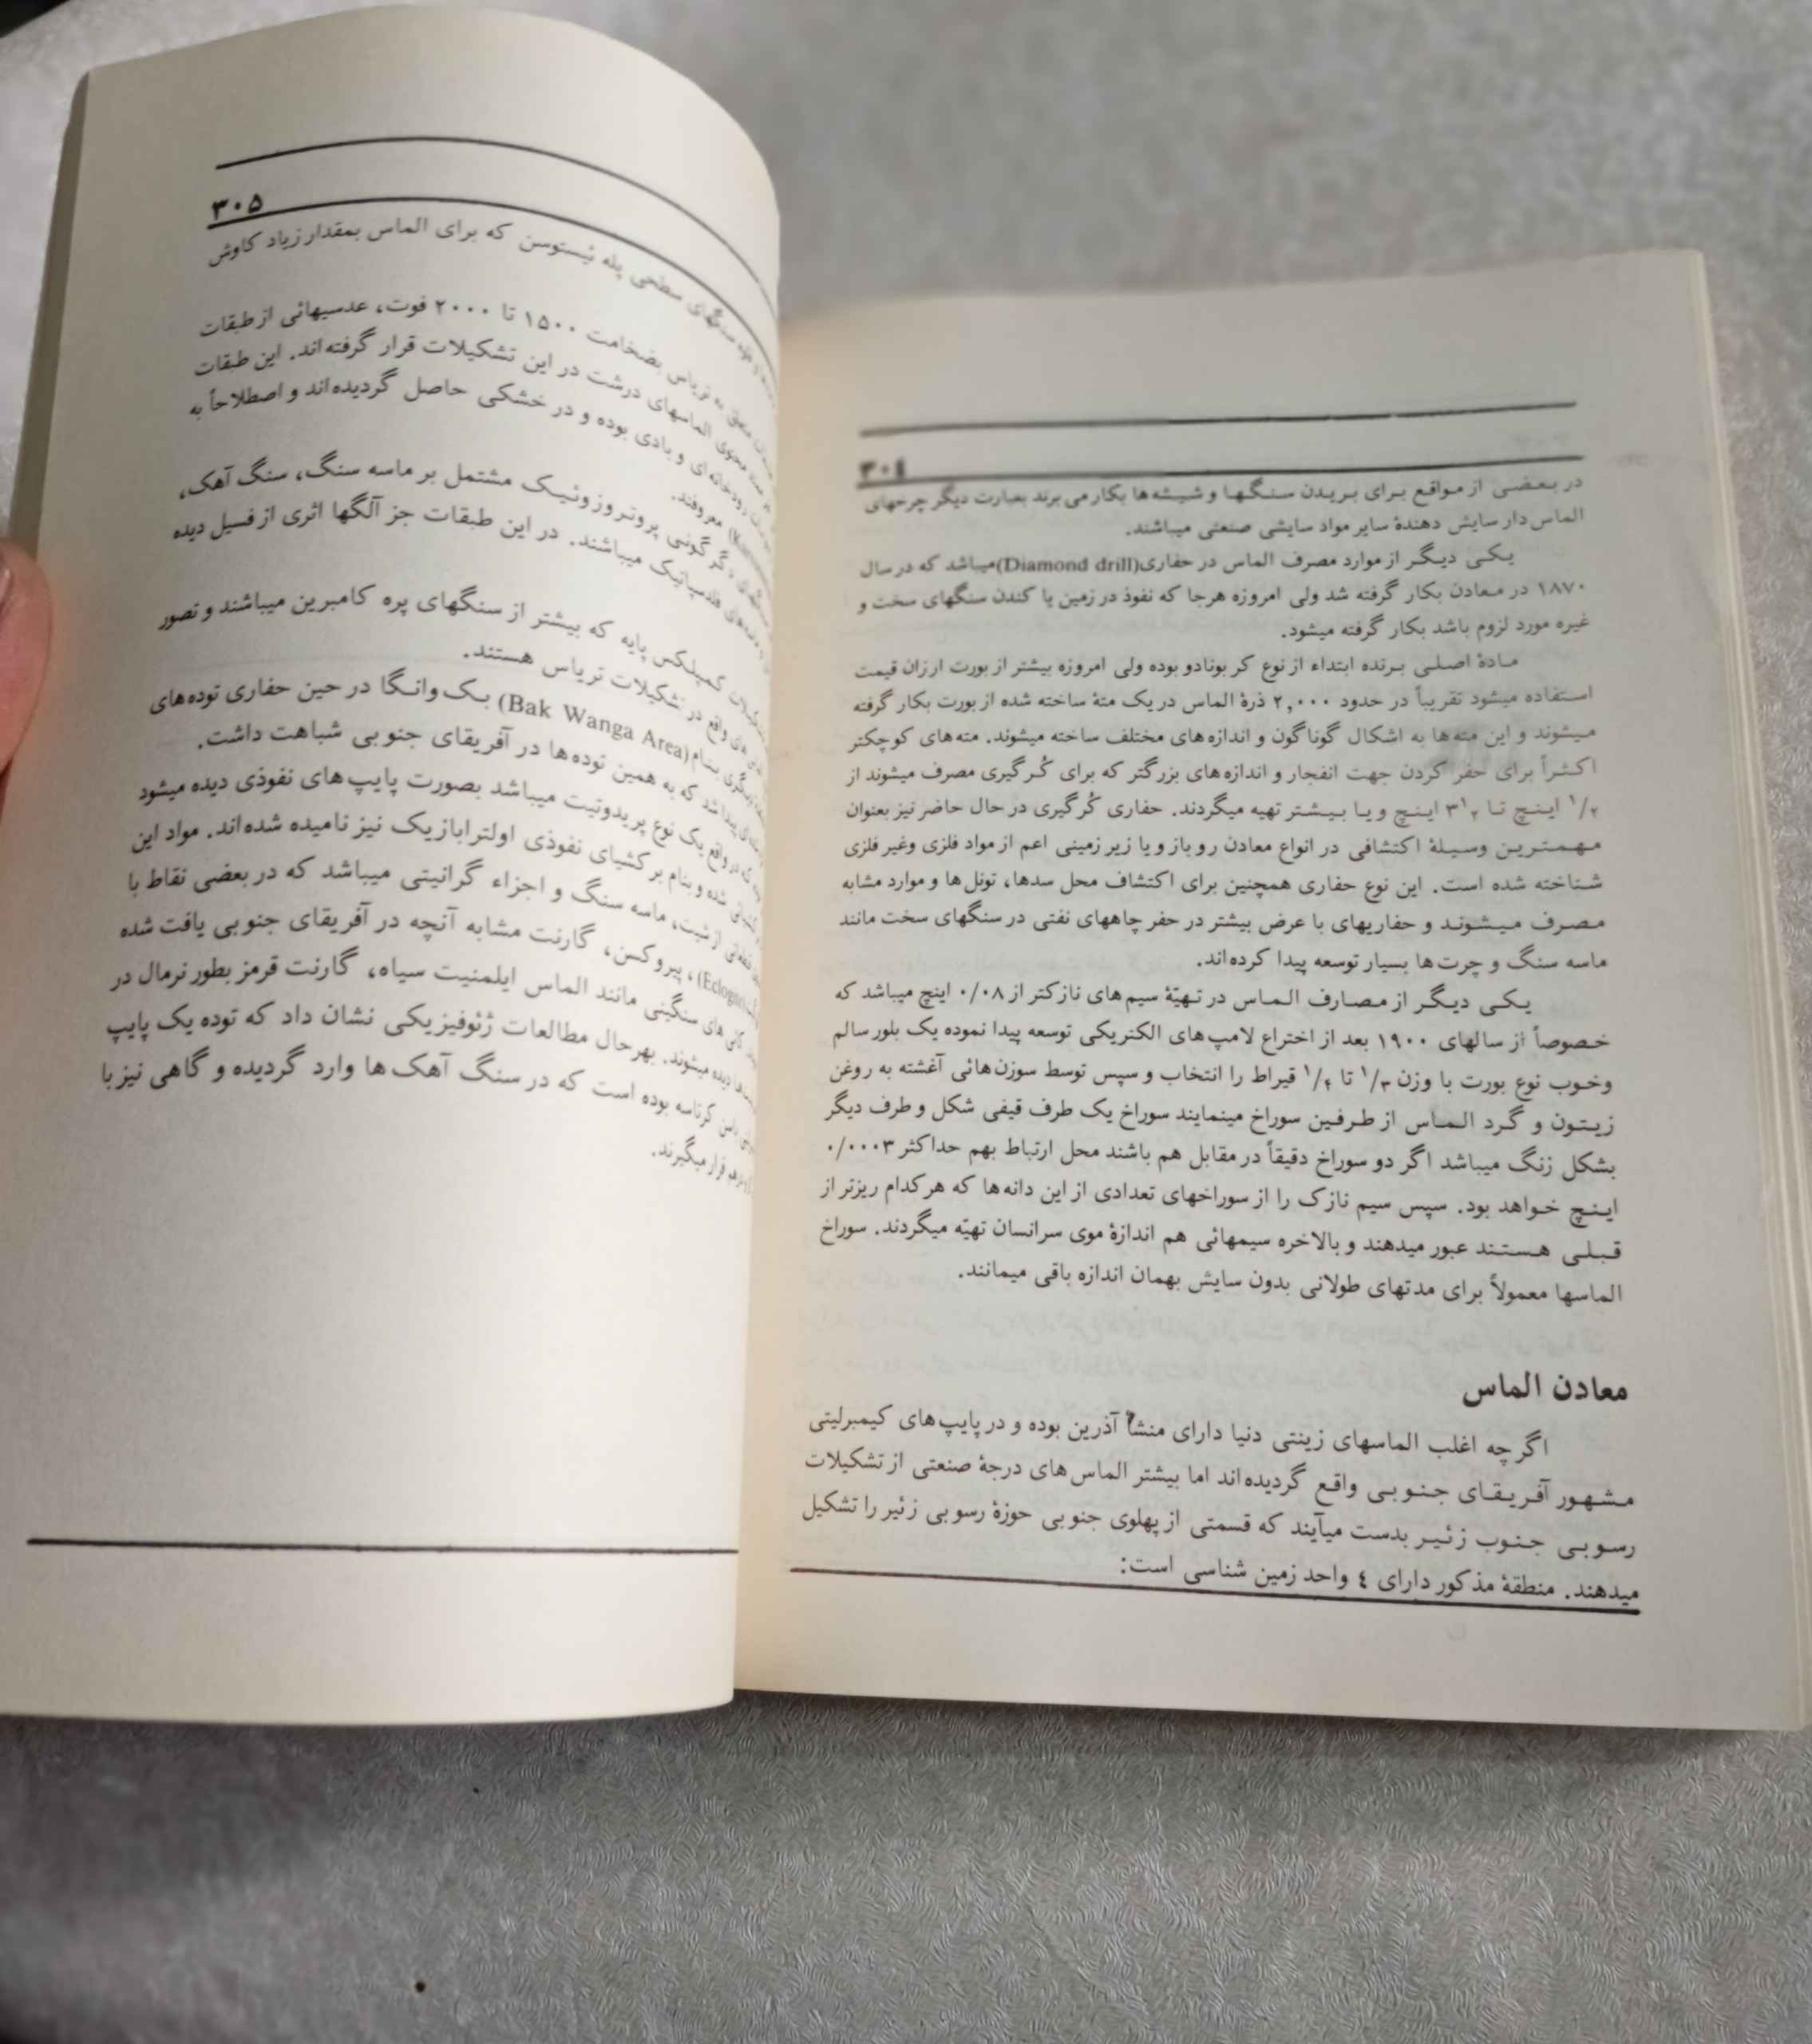 ۳۰٤
در بعضی از مواقع برای بریدن سنگها و شیشه ها بکار می برند بعبارت دیگر چرخهای
الماس دار سایش دهندهٔ سایر مواد سایشی صنعتی میباشند.
یکی دیگر از موارد مصرف الماس در حفاری (Diamond drill) میباشد که در سال
۱۸۷۰ در معادن بکار گرفته شد ولی امروزه هرجا که نفوذ در زمین یا کندن سنگهای سخت و
غیره مورد لزوم باشد بکار گرفته میشود.
مادهٔ اصلی برنده ابتداء از نوع کر بونادو بوده ولی امروزه بیشتر از بورت ارزان قیمت
استفاده میشود تقریباً در حدود ۲,۰۰۰ ذرهٔ الماس در یک متهٔ ساخته شده از بورت بکار گرفته
میشوند و این مته ها به اشکال گوناگون و اندازه های مختلف ساخته میشوند. مته های کوچکتر
اکثراً برای حفر کردن جهت انفجار و اندازه های بزرگتر که برای کُر گیری مصرف میشوند از
۱/۲ اینچ تا ۳ ۱/۲ اینچ و یا بیشتر تهیه میگردند. حفاری کُر گیری در حال حاضر نیز بعنوان
مهمترین وسیلهٔ اکتشافی در انواع معادن رو باز و یا زیر زمینی اعم از مواد فلزی وغیر فلزی
شناخته شده است. این نوع حفاری همچنین برای اکتشاف محل سدها، تونل ها و موارد مشابه
مصرف میشوند و حفاریهای با عرض بیشتر در حفر چاههای نفتی در سنگهای سخت مانند
ماسه سنگ و چرت ها بسیار توسعه پیدا کرده اند.
یکی دیگر از مصارف الماس در تهیّهٔ سیم های نازکتر از ۰/۰۸ اینچ میباشد که
خصوصاً از سالهای ۱۹۰۰ بعد از اختراع لامپ های الکتریکی توسعه پیدا نموده یک بلور سالم
وخوب نوع بورت با وزن ۱/۳ تا ۱/۴ قیراط را انتخاب و سپس توسط سوزن هائی آغشته به روغن
زیتون و گرد الماس از طرفین سوراخ مینمایند سوراخ یک طرف قیفی شکل و طرف دیگر
بشکل زنگ میباشد اگر دو سوراخ دقیقاً در مقابل هم باشند محل ارتباط بهم حداکثر ۰/۰۰۰۳
اینچ خواهد بود. سپس سیم نازک را از سوراخهای تعدادی از این دانه ها که هر کدام ریزتر از
قبلی هستند عبور میدهند و بالاخره سیمهائی هم اندازهٔ موی سرانسان تهیّه میگردند. سوراخ
الماسها معمولاً برای مدتهای طولانی بدون سایش بهمان اندازه باقی میمانند.
معادن الماس
اگر چه اغلب الماسهای زینتی دنیا دارای منشأ آذرین بوده و در پایپ های کیمبرلیتی
مشهور آفریقای جنوبی واقع گردیده اند اما بیشتر الماس های درجهٔ صنعتی از تشکیلات
رسوبی جنوب زئیر بدست میآیند که قسمتی از پهلوی جنوبی حوزهٔ رسوبی زئیر را تشکیل
میدهند. منطقهٔ مذکور دارای ٤ واحد زمین شناسی است:
۳۰۵
سنگهای سطحی پله ئیستوسن که برای الماس بمقدار زیاد کاوش
به تریاس بضخامت ۱۵۰۰ تا ۲۰۰۰ فوت، عدسیهائی از طبقات
محتوی الماسهای درشت در این تشکیلات قرار گرفته اند. این طبقات
رودخانه ای و بادی بوده و در خشکی حاصل گردیده اند و اصطلاحاً به
معروفند.
دگر گونی پروتروزوئیک مشتمل بر ماسه سنگ، سنگ آهک،
فلدسپاتیک میباشند. در این طبقات جز آلگها اثری از فسیل دیده
کمپلکس پایه که بیشتر از سنگهای پره کامبرین میباشند و تصور
های واقع در تشکیلات تریاس هستند.
دیگری بنام (Bak Wanga Area) بک وانگا در حین حفاری توده های
پیدا شد که به همین توده ها در آفریقای جنوبی شباهت داشت.
که در واقع یک نوع پریدوتیت میباشد بصورت پایپ های نفوذی دیده میشود
شده و بنام بر کشیای نفوذی اولترابازیک نیز نامیده شده اند. مواد این
از شیت، ماسه سنگ و اجزاء گرانیتی میباشد که در بعضی نقاط با
(Eclogite)، پیروکسن، گارنت مشابه آنچه در آفریقای جنوبی یافت شده
کانی های سنگینی مانند الماس ایلمنیت سیاه، گارنت قرمز بطور نرمال در
دیده میشوند. بهرحال مطالعات ژئوفیزیکی نشان داد که توده یک پایپ
کرتاسه بوده است که در سنگ آهک ها وارد گردیده و گاهی نیز با
درهم قرار میگیرند.